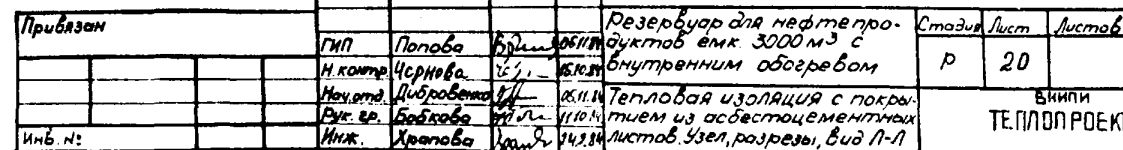 Привязан
Инв. №:
ГИП Попова 06.11.84
Н.контр. Чернова 16.10.84
Нач.отд. Дибровенко 06.11.84
Рук. гр. Бабкова 11.10.84
Инж. Храпова 24.9.84
Резервуар для нефтепро-
дуктов емк. 3000 м³ с
внутренним обогревом
Тепловая изоляция с покры-
тием из асбестоцементных
листов. Узел, разрезы, вид Л-Л
Стадия Лист Листов
Р 20
ВНИПИ
ТЕПЛОПРОЕКТ